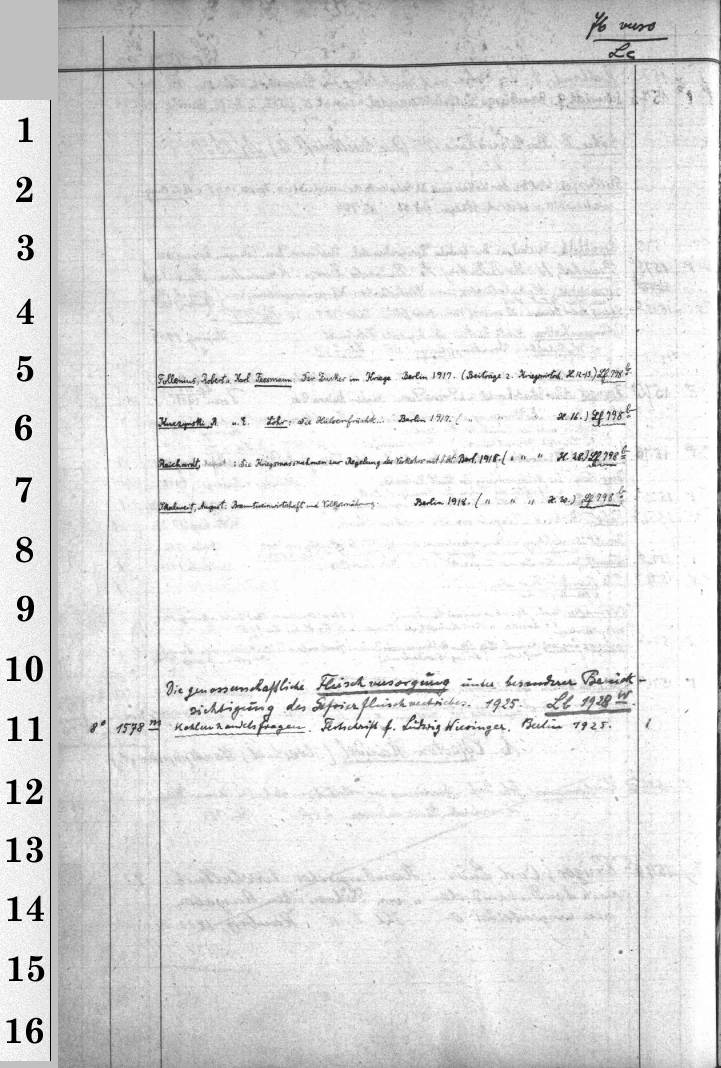 76 verso
Lc
1
2
3
4
5
Follenius, Robert u. Karl Fessmann: Der Zucker im Kriege. Berlin 1917. (Beiträge z. Kriegswirtsch. H. 12-13.) Lf 798 b
6
Kuczynski, R. u. E. Lohr: Die Hülsenfrüchte. Berlin 1917. ( " " " H. 16.) Lf 798 b
Reichardt, : Die Kriegsmassnahmen zur Regelung des Verkehrs mit Berl. 1918. ( " " " H. 28.) Lf 798 b
7
Skalweit, August: Branntweinwirtschaft und Volksernährung. Berlin 1918. ( " " " H. ) Lf 798 b
8
9
10
Die genossenschaftliche Fleischversorgung unter besonderer Berück-
sichtigung des Gefrierfleischvertriebes. 1925. Lb 1928 w.
11
8° 1578 m Kohlenhandelsfragen. Festschrift f. Ludwig Wiesinger. Berlin 1925. 1
12
13
14
15
16